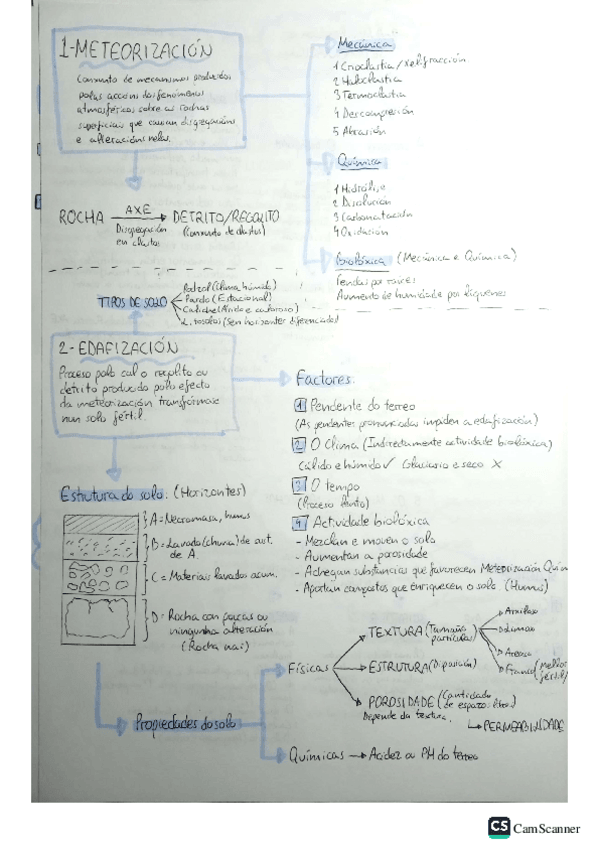 1-METEORIZACIÓN
Conxunto de mecanismos producidos
polas accións dos fenómenos
atmosféricos sobre as rochas
superficiais que causan disgregacións
e alteracións nelas.
Mecánica
1 Crioclastia/Xelifracción
2 Haloclastia
3 Termoclastia
4 Descompresión
5 Abrasión
Química
1 Hidrólise
2 Disolución
3 Carbonatación
4 Oxidación
Biolóxica (Mecánica e Química)
Fendas por raíces
Aumento de humidade por líquenes
ROCHA
AXE
Disgregación
en clastos
DETRITO/REGOLITO
(Conxunto de clastos)
TIPOS DE SOLO
Podzol (Clima húmido)
Pardo (Estacional)
Caliche (Árido e caloroso)
Litosolos (Sen horizontes diferenciados)
2-EDAFIZACIÓN
Proceso polo cal o regolito ou
detrito producido polo efecto
da meteorización transfórmase
nun solo fértil.
Factores:
1 Pendente do terreo
(As pendentes pronunciadas impiden a edafización)
2 O Clima (Indirectamente actividade biolóxica)
Cálido e húmido ✓ Glaciario e seco X
3 O tempo
(Proceso lento)
4 Actividade biolóxica
- Mezclan e moven o solo
- Aumentan a porosidade
- Achegan substancias que favorecen Meteorización Quím
- Aportan compostos que enriquecen o solo. (Humus)
Estrutura do solo: (Horizontes)
A = Necromasa, humus
B = Lavado (chuvia) de sust.
de A.
C = Materiais lavados acum.
D = Rocha con poucas ou
ningunha alteración
(Rocha nai)
Propiedades do solo
Físicas
TEXTURA (Tamaño
partículas)
Arxilas
Limos
Areas
Franco (Mellor
fértil)
ESTRUTURA (Disposición)
POROSIDADE (Cantidade
de espazos libres)
Depende da textura.
PERMEABILIDADE
Químicas → Acidez ou PH do terreo
CS CamScanner